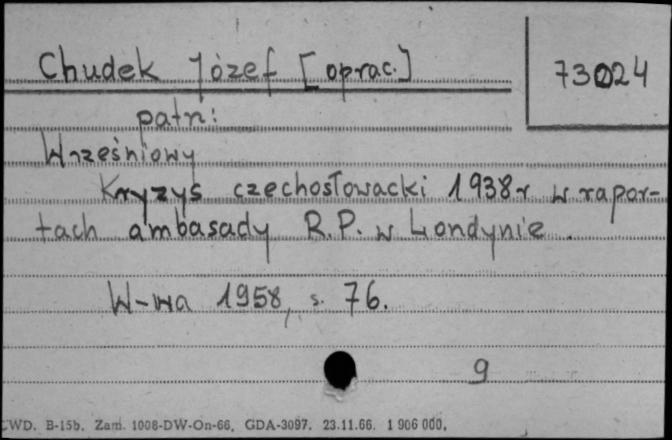 Chudek Józef [oprac.]
73024
patrz:
Wrześniowy
Kryzys czechosłowacki 1938 r w rapor-
tach ambasady R.P. w Londynie.
W-wa 1958, s. 76.
9
CWD. B-15b. Zam. 1008-DW-On-66. GDA-3097. 23.11.66. 1 906 000.